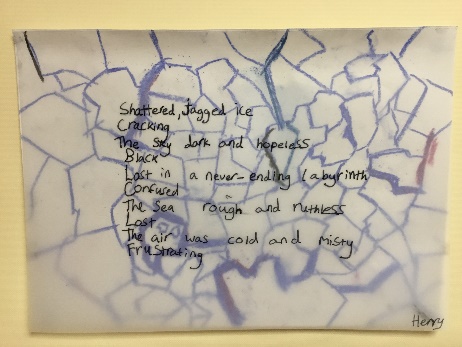 Shattered, Jagged ice
Cracking
The sky dark and hopeless
Black
Lost in a never-ending labyrinth
Confused
The sea rough and ruthless
Lost
The air was cold and misty
Frustrating
Henry